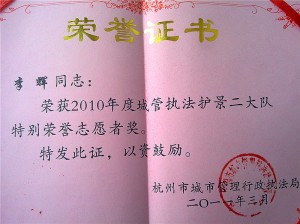 荣誉证书
李辉同志：
荣获2010年度城管执法护景二大队
特别荣誉志愿者奖。
特发此证，以资鼓励。
杭州市城市管理行政执法局
二〇一一年三月